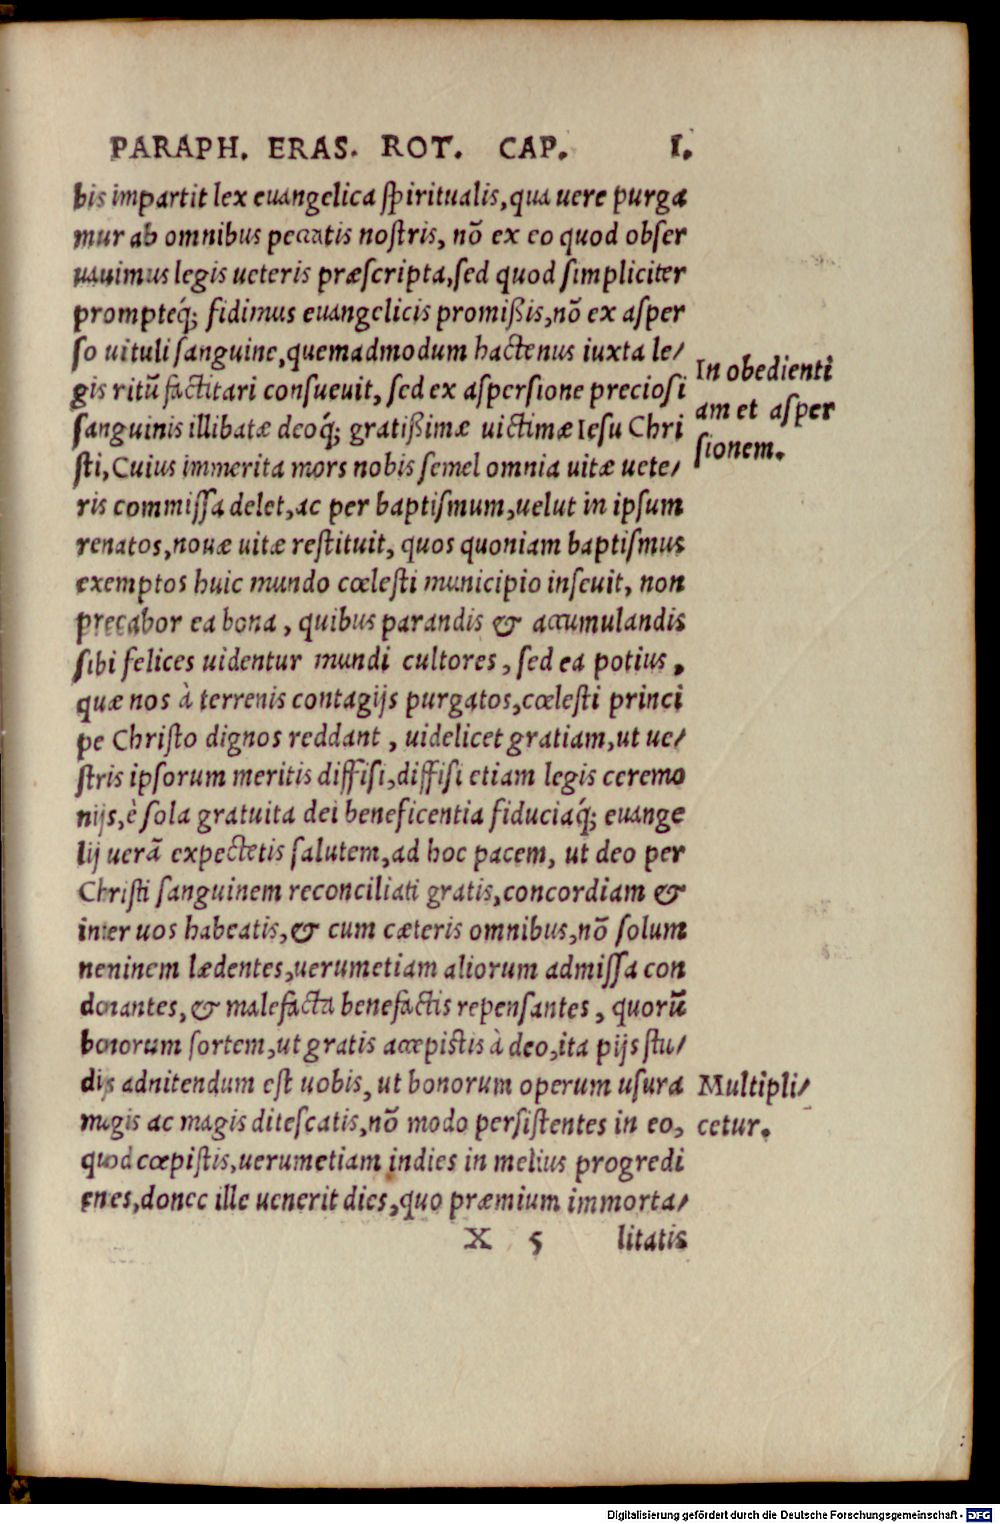 PARAPH. ERAS. ROT. CAP. I.
bis impartit lex euangelica ſpiritualis, qua uere purga
mur ab omnibus peccatis noſtris, nõ ex eo quod obſer
uauimus legis ueteris præſcripta, ſed quod ſimpliciter
prompteq́; fidimus euangelicis promißis, nõ ex aſper
ſo uituli ſanguine, quemadmodum hactenus iuxta le/
gis ritũ factitari conſueuit, ſed ex aſperſione precioſi
ſanguinis illibatæ deoq́; gratißimæ uictimæ Ieſu Chri
ſti, Cuius immerita mors nobis ſemel omnia uitæ uete/
ris commiſſa delet, ac per baptiſmum, uelut in ipſum
renatos, nouæ uitæ reſtituit, quos quoniam baptiſmus
exemptos huic mundo cœleſti municipio inſeuit, non
precabor ea bona, quibus parandis & accumulandis
ſibi felices uidentur mundi cultores, ſed ea potius,
quæ nos à terrenis contagijs purgatos, cœleſti princi
pe Chriſto dignos reddant, uidelicet gratiam, ut ue/
ſtris ipſorum meritis diffiſi, diffiſi etiam legis ceremo
nijs, è ſola gratuita dei beneficentia fiduciaq́; euange
lij uerã expectetis ſalutem, ad hoc pacem, ut deo per
Chriſti ſanguinem reconciliati gratis, concordiam &
inter uos habeatis, & cum cæteris omnibus, nõ ſolum
neminem lædentes, uerumetiam aliorum admiſſa con
donantes, & malefacta benefactis repenſantes, quorũ
bonorum ſortem, ut gratis accepiſtis à deo, ita pijs ſtu/
dijs adnitendum eſt uobis, ut bonorum operum uſura
magis ac magis diteſcatis, nõ modo perſiſtentes in eo,
quod cœpiſtis, uerumetiam indies in melius progredi
entes, donec ille uenerit dies, quo præmium immorta/
X 5 litatis
In obedienti
am et aſper
ſionem.
Multipli/
cetur.
Digitalisierung gefördert durch die Deutsche Forschungsgemeinschaft - DFG